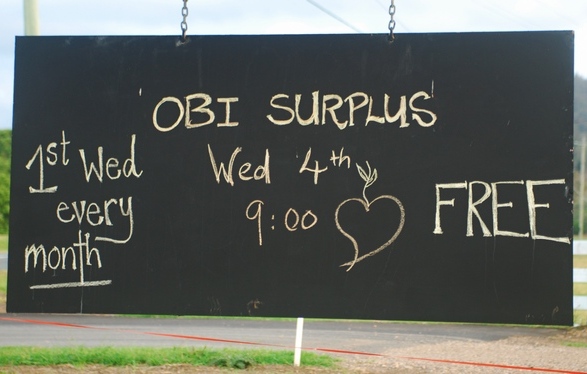 'OBI SURPLUS'
1st Wed
every
month
Wed 4th
9:00
FREE